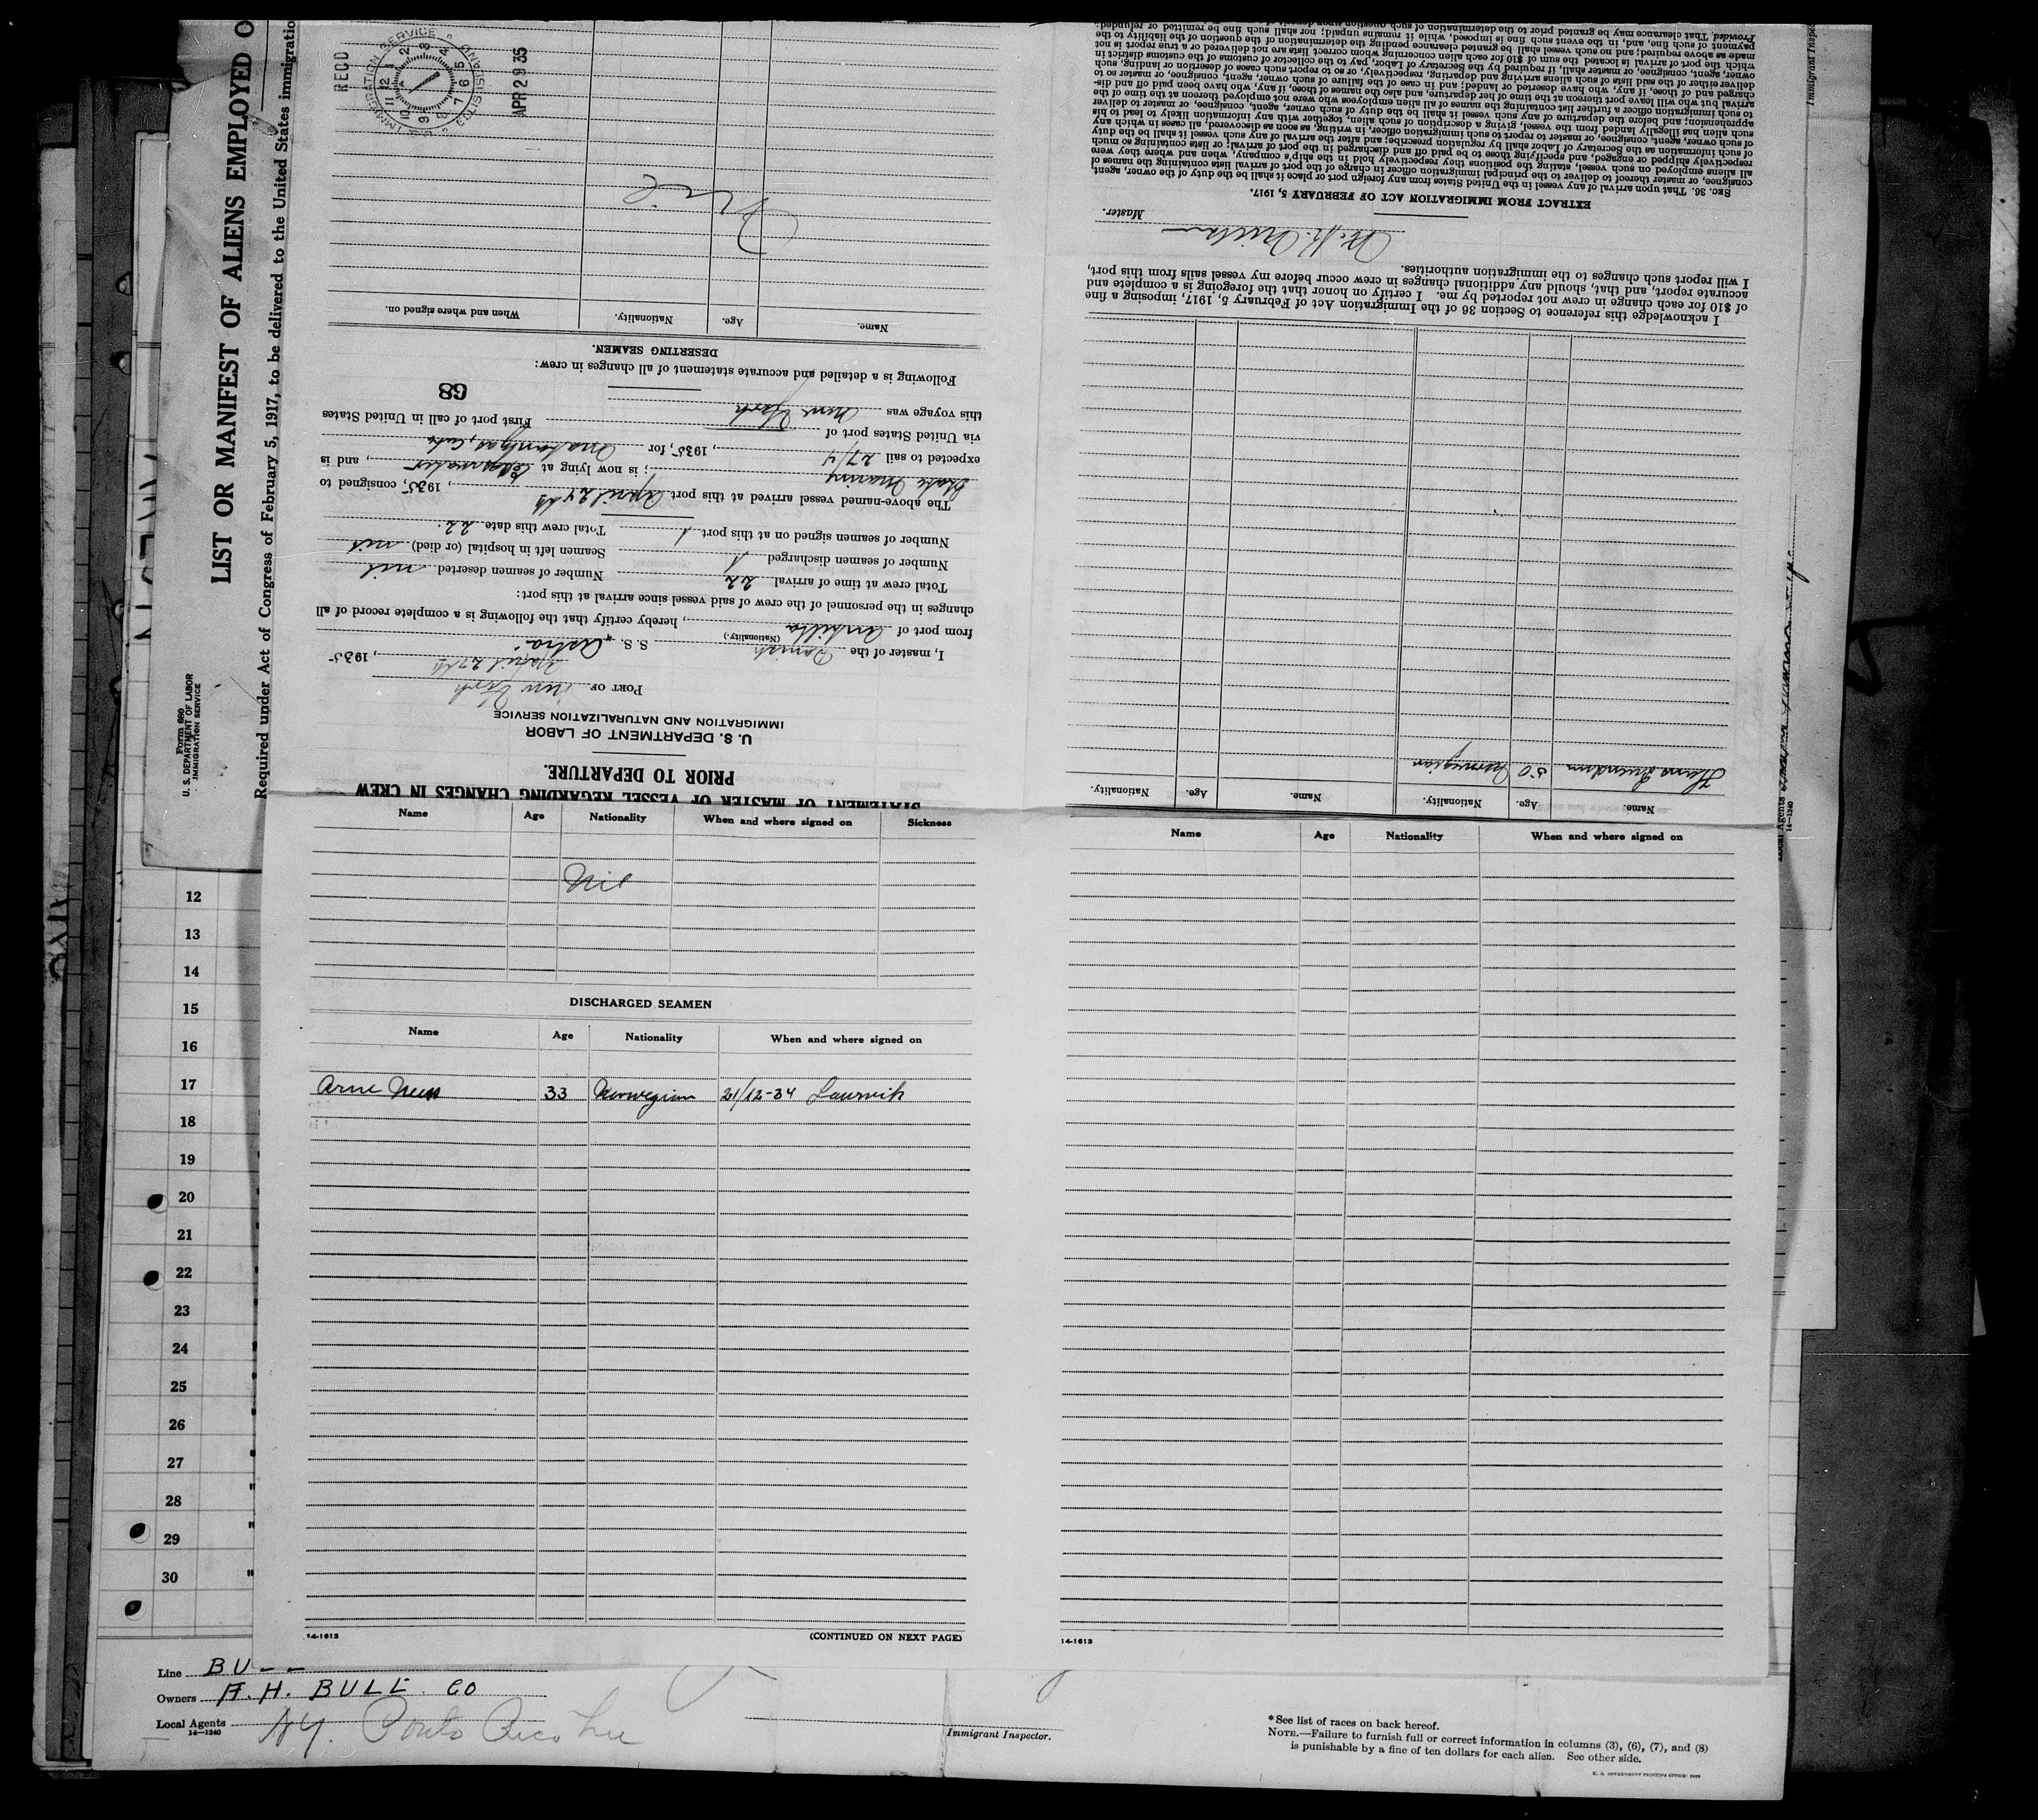 LIST OR MANIFEST OF ALIENS EMPLOYED O
Required under Act of Congress of February 5, 1917, to be delivered to the United States immigratio
Form 680
U. S. DEPARTMENT OF LABOR
IMMIGRATION SERVICE
RECD
APR 29 35
U.S. IMMIGRATION SERVICE
STATEMENT OF MASTER OF VESSEL REGARDING CHANGES IN CREW
PRIOR TO DEPARTURE.
U. S. DEPARTMENT OF LABOR
IMMIGRATION AND NATURALIZATION SERVICE
PORT OF New York
April 27th, 1935
I, master of the Danish S. S. "Astra"
(Nationality)
from port of Antilla, hereby certify that the following is a complete record of all
changes in the personnel of the crew of said vessel since arrival at this port:
Total crew at time of arrival 22 Number of seamen deserted nil
Number of seamen discharged 1 Seamen left in hospital (or died) nil
Number of seamen signed on at this port 1 Total crew this date 22.
The above-named vessel arrived at this port April 24th, 1935, consigned to
; is now lying at Edgewater, and is
expected to sail 27/4, 1935, for Matanzas, Cuba
via United States port of
First port of call in United States
this voyage was New York
68
Following is a detailed and accurate statement of all changes in crew:
DESERTING SEAMEN.
Name. Age. Nationality. When and where signed on.
Nil
Name. Age. Nationality. Name. Age. Nationality.
50 Norwegian
I acknowledge this reference to Section 36 of the Immigration Act of February 5, 1917, imposing a fine
of $10 for each change in crew not reported by me. I certify on honor that the foregoing is a complete and
accurate report, and that, should any additional changes in crew occur before my vessel sails from this port,
I will report such changes to the immigration authorities.
Master.
EXTRACT FROM IMMIGRATION ACT OF FEBRUARY 5, 1917.
Sec. 36. That upon arrival of any vessel in the United States from any foreign port or place it shall be the duty of the owner, agent,
consignee, or master thereof to deliver to the principal immigration officer in charge of the port of arrival lists containing the names of
all aliens employed on such vessel, stating the positions they respectively hold in the ship's company, when and where they were
respectively shipped or engaged, and specifying those to be paid off and discharged in the port of arrival; or lists containing so much
of such information as the Secretary of Labor shall by regulation prescribe; and after the arrival of any such vessel it shall be the duty
of such owner, agent, consignee, or master to report to such immigration officer, in writing, as soon as discovered, all cases in which any
such alien has illegally landed from the vessel, giving a description of such alien, together with any information likely to lead to his
apprehension; and before the departure of any such vessel it shall be the duty of such owner, agent, consignee, or master to deliver
to such immigration officer a further list containing the names of all alien employees who were not employed thereon at the time of the
arrival but who will leave port thereon at the time of her departure, and also the names of those, if any, who have been paid off and dis-
charged and of those, if any, who have deserted or landed; and in case of the failure of such owner, agent, consignee, or master so to
deliver either of the said lists of such aliens arriving and departing, respectively, or so to report such cases of desertion or landing, such
owner, agent, consignee, or master shall, if required by the Secretary of Labor, pay to the collector of customs of the customs district in
which the port of arrival is located the sum of $10 for each alien concerning whom correct lists are not delivered or a true report is not
made as above required; and no such vessel shall be granted clearance pending the determination of the question of the liability to the
payment of such fine, and, in the event such fine is imposed, while it remains unpaid; nor shall such fine be remitted or refunded:
Provided, That clearance may be granted prior to the determination of such question upon
Name Age Nationality When and where signed on Sickness
Nil
DISCHARGED SEAMEN
Name Age Nationality When and where signed on
Arne 33 Norwegian 21/12-34 Laurvik
14-1613
(CONTINUED ON NEXT PAGE)
Name Age Nationality When and where signed on
14-1613
12
13
14
15
16
17
18
19
20
21
22
23
24
25
26
27
28
29
30
Line BU--
Owners A. H. BULL CO
Local Agents NY. Porto Rico Line
14-1240
Immigrant Inspector.
*See list of races on back hereof.
NOTE.—Failure to furnish full or correct information in columns (3), (6), (7), and (8)
is punishable by a fine of ten dollars for each alien. See other side.
U. S. GOVERNMENT PRINTING OFFICE
Local Agents
14-1240
Immigrant Inspe